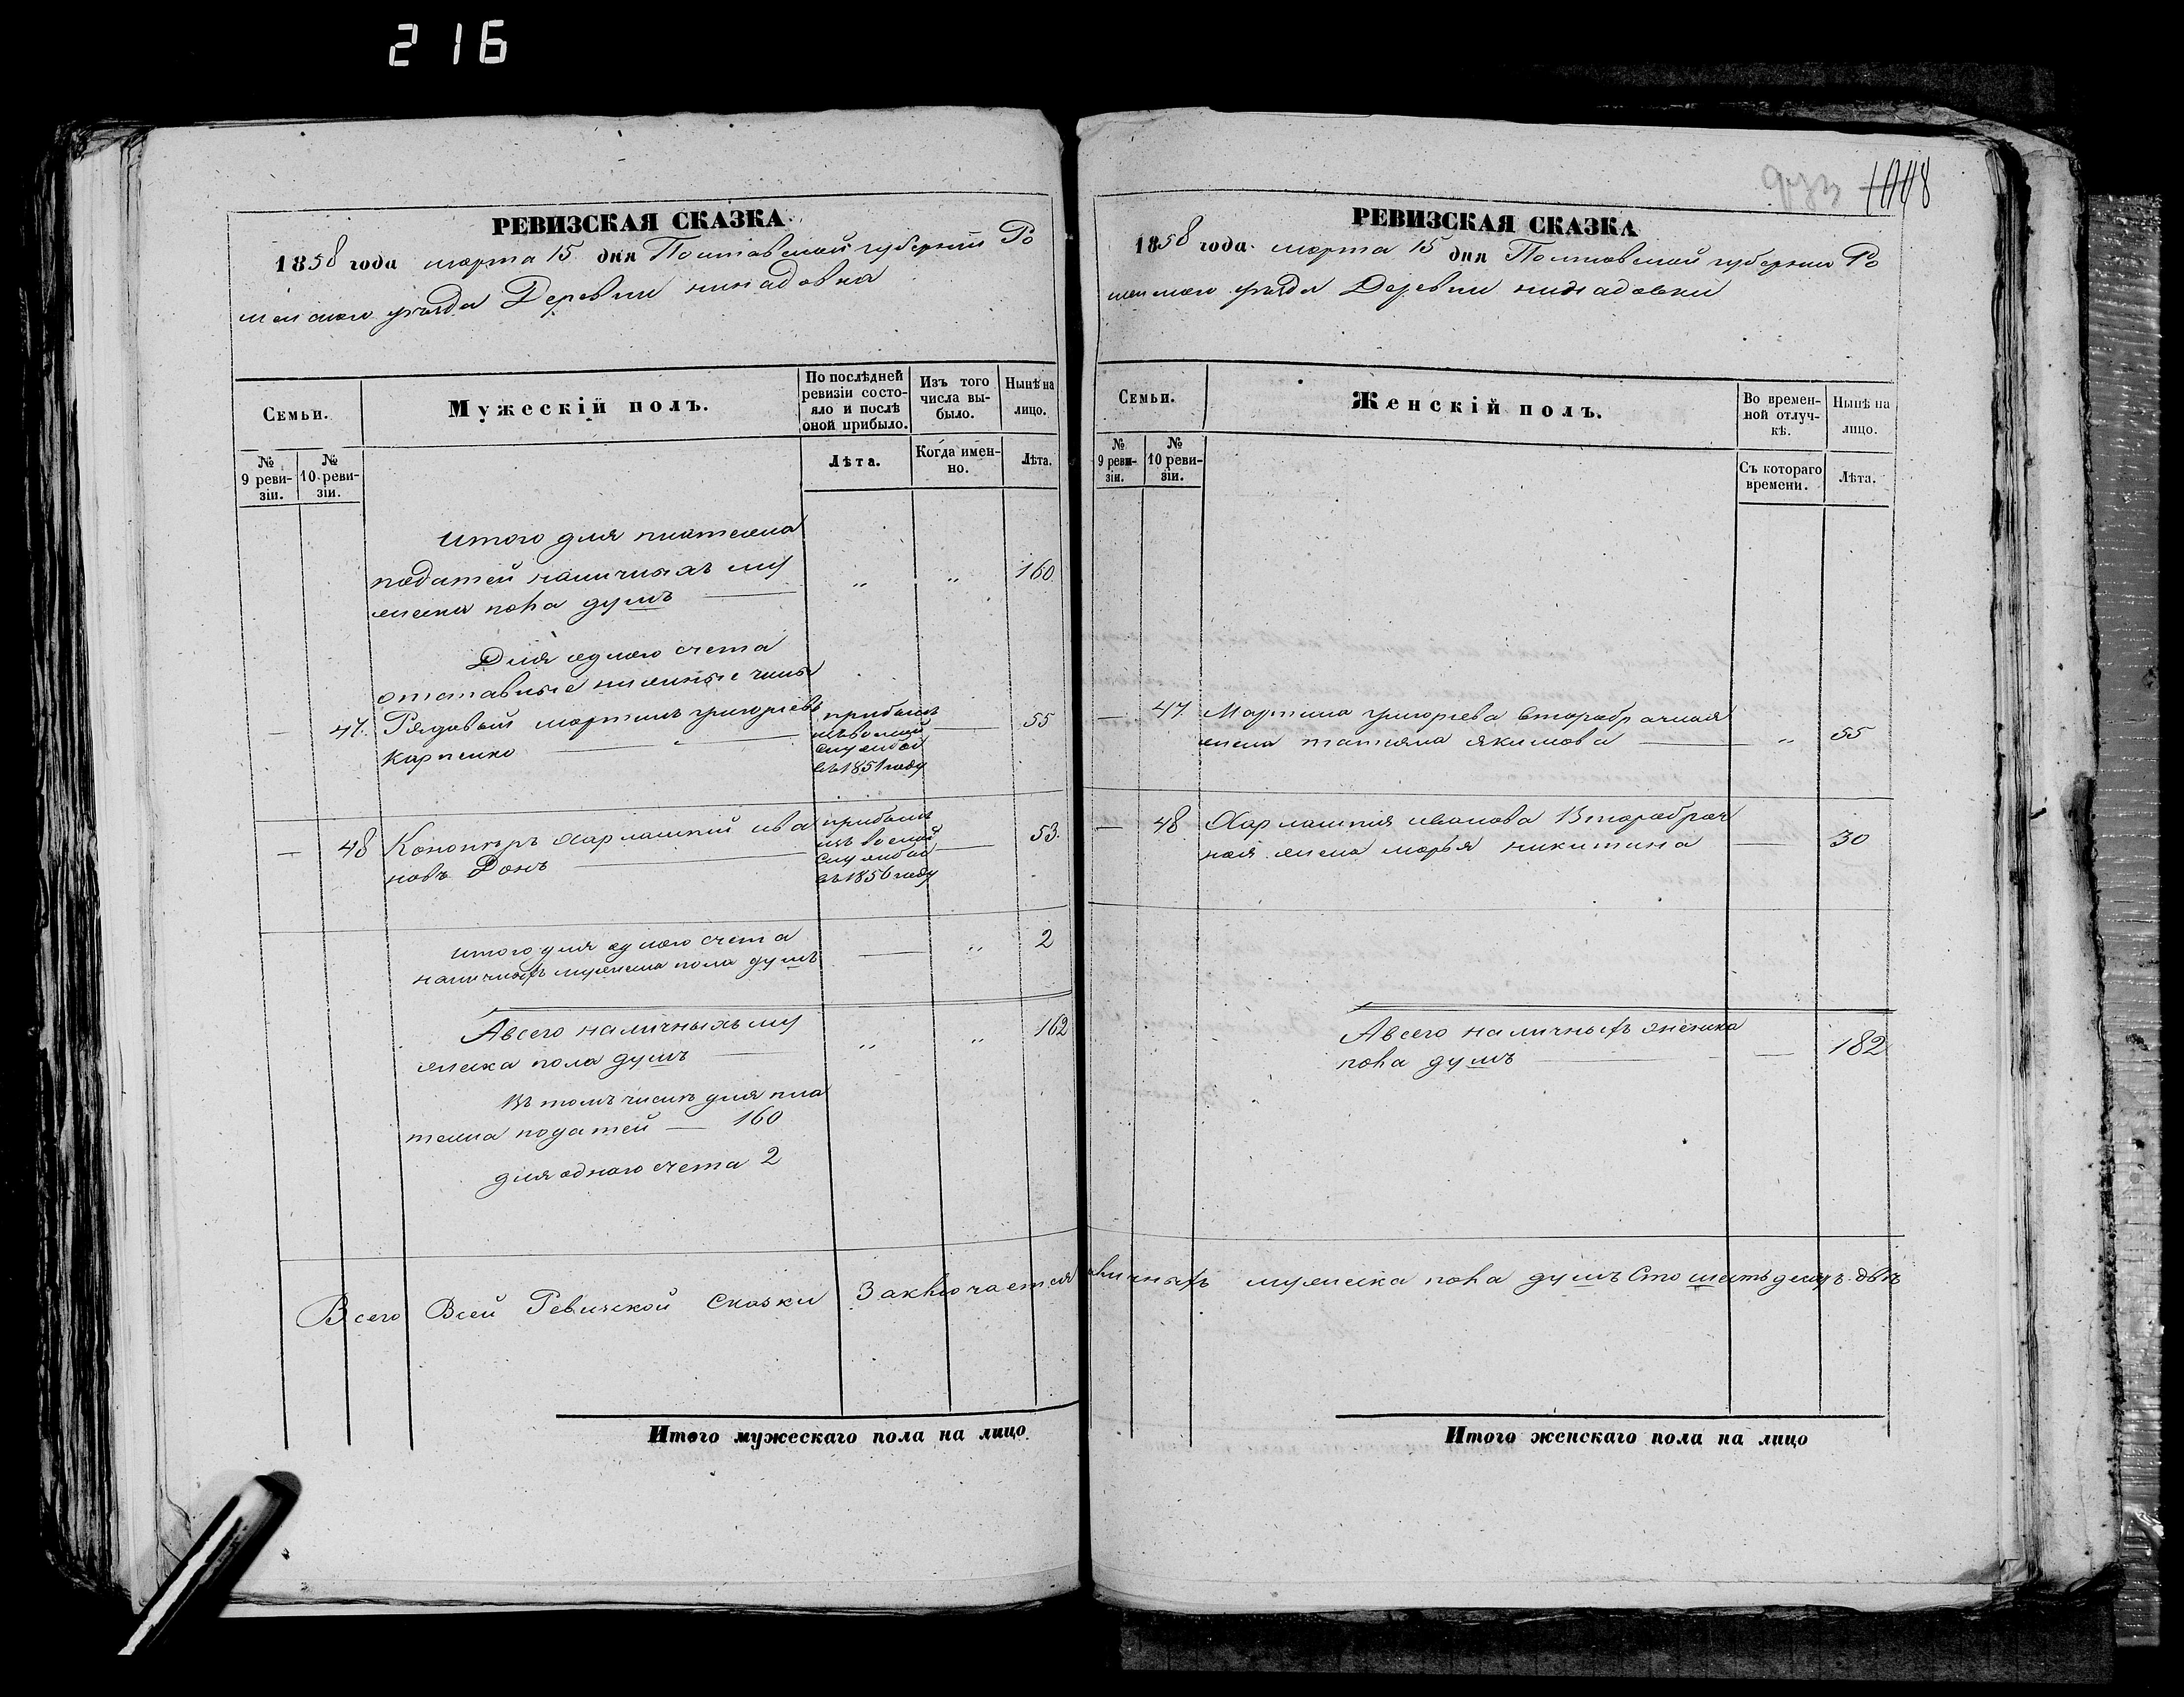 216
РЕВИЗСКАЯ СКАЗКА
1858 года марта 15 дня Полтавской губернии Ро
менского уезда Деревни
Семьи.
Мужескій полъ.
По послѣдней ревизіи состояло и послѣ оной прибыло.
Изъ того числа выбыло.
Нынѣ на лицо.
№ 9 ревизіи.
№ 10 ревизіи.
Лѣта.
Когда именно.
Лѣта.
Итого для платежа
податей наличныхъ му
жеска пола душъ — „ „ 160
Для одного счета
отставные нижние чины
— 47. Рядовый Мартинъ Григорьевъ прибылъ — 55
Карпенко — изъ воен[ной]
службы
въ 1851 году
— 48 Харлампий Ива прибылъ — 53.
новъ Донъ — изъ военой
службы
въ 1856 году
итого для одного счета
наличныхъ мужеска пола душъ — „ 2
А всего наличныхъ му
жеска пола душъ — „ „ 162
Въ томъ числѣ для пла
тежа податей — 160
для одного счета 2
Всего Всей Ревизской Сказки Заключается
Итого мужескаго пола на лицо
1008
РЕВИЗСКАЯ СКАЗКА
1858 года марта 15 дня Полтавской губернии Ро
менского уезда Деревни
Семьи.
Женскій полъ.
Во временной отлучкѣ.
Нынѣ на лицо.
№ 9 ревизіи.
№ 10 ревизіи.
Съ котораго времени.
Лѣта.
— 47. Мартина Григорьева Второбрачная
жена Татияна Якимова — „ 55
— 48 Харлампия Иванова Второбрач
ная жена Марья Никитина — 30
А всего наличныхъ женска
пола душъ — — 182
наличныхъ мужеска пола душъ Сто шестьдесятъ двѣ
Итого женскаго пола на лицо